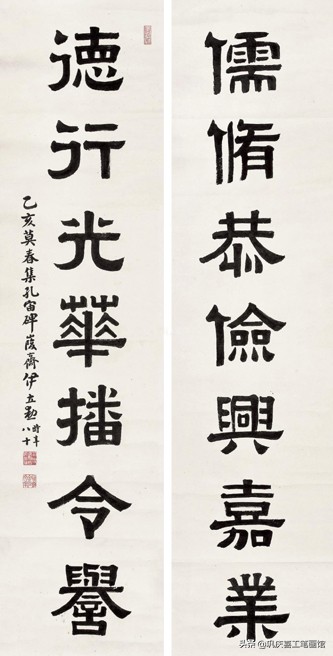 儒脩恭儉興嘉業
德行光華播令譽
乙亥莫春集孔宙碑峻齋伊立勳時年
八十
头条 工笔画馆